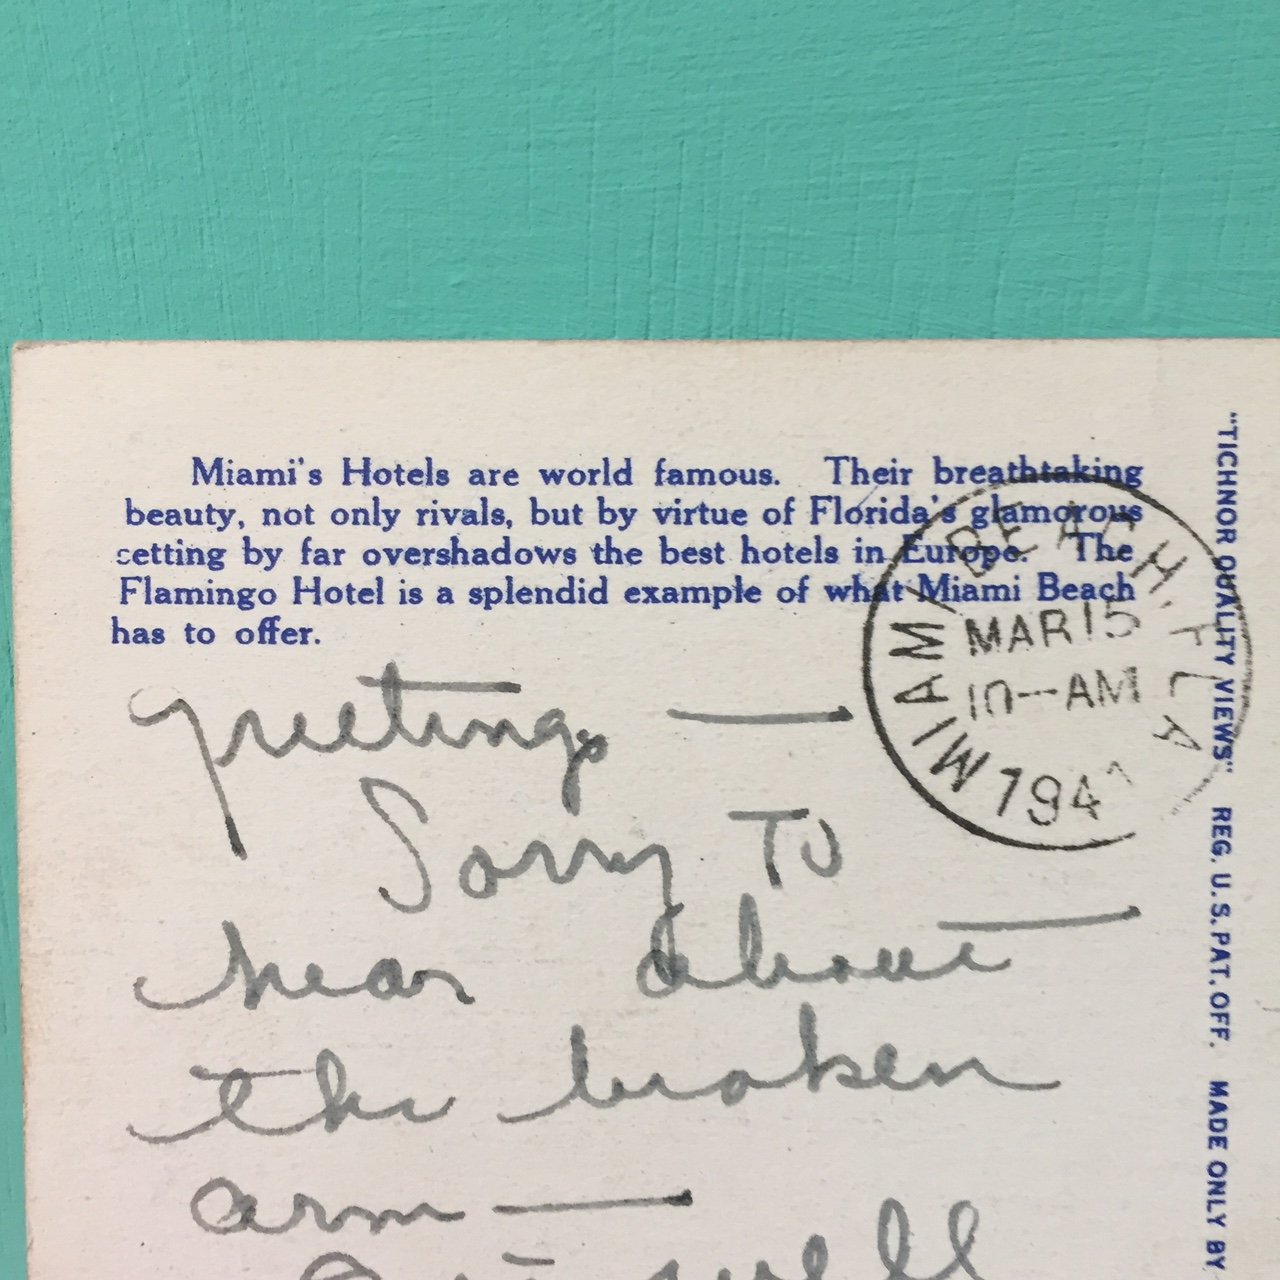 Miami's Hotels are world famous. Their breathtaking
beauty, not only rivals, but by virtue of Florida's glamorous
setting by far overshadows the best hotels in Europe. The
Flamingo Hotel is a splendid example of what Miami Beach
has to offer.
MIAMI BEACH, FLA
MAR 15
10—AM
1941
Greetings —
Sorry To
hear about
the broken
arm —
well
"TICHNOR QUALITY VIEWS" REG. U. S. PAT. OFF. MADE ONLY BY